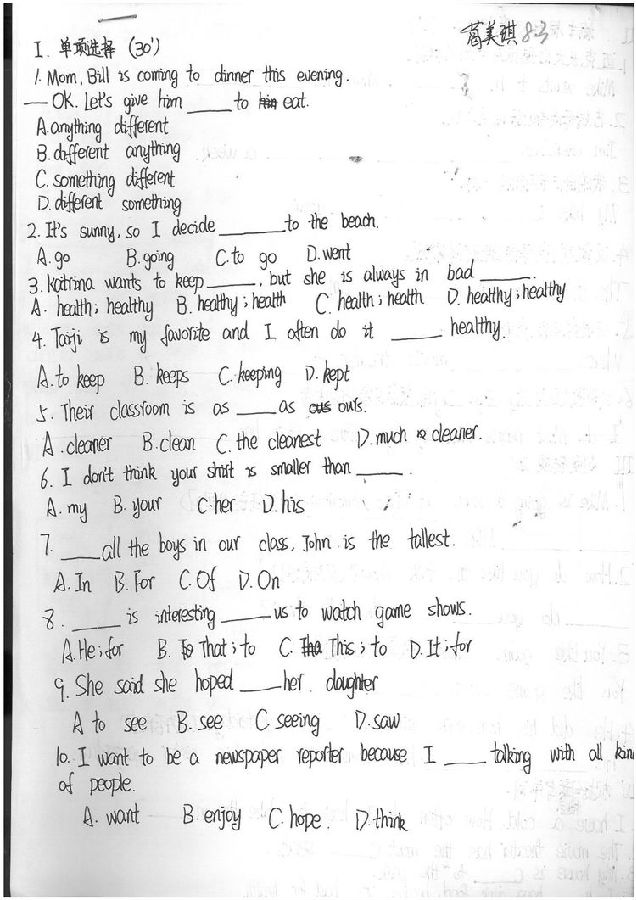 葛美琪 8.3
I. 单项选择 (30')
1. Mom, Bill is coming to dinner this evening.
— OK. Let's give him ____ to eat.
A anything different
B. different anything
C. something different
D. different something
2. It's sunny, so I decide ________ to the beach.
A. go B. going C. to go D. went
3. Katrina wants to keep _____, but she is always in bad _____.
A. health; healthy B. healthy; health C. health; health D. healthy; healthy
4. Taiji is my favorite and I often do it _____ healthy.
A. to keep B. keeps C. keeping D. kept
5. Their classroom is as ____ as ours.
A. cleaner B. clean C. the cleanest D. much cleaner.
6. I don't think your shirt is smaller than _____.
A. my B. your C. her D. his
7. ____ all the boys in our class, John is the tallest.
A. In B. For C. Of D. On
8. _____ is interesting _____ us to watch game shows.
A. He; for B. That; to C. This; to D. It; for
9. She said she hoped ____ her daughter
A to see B. see C. seeing D. saw
10. I want to be a newspaper reporter because I ____ talking with all
of people.
A. want B enjoy C. hope. D. think